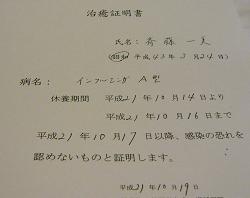 治癒証明書
氏名: 斉藤 一美
(昭和 平成 43年 3月 24日)
病名: A型
休養期間 平成21年10月14日より
平成21年10月16日まで
平成21年10月17日以降、感染の恐れを
認めないものと証明します。
平成21年10月19日